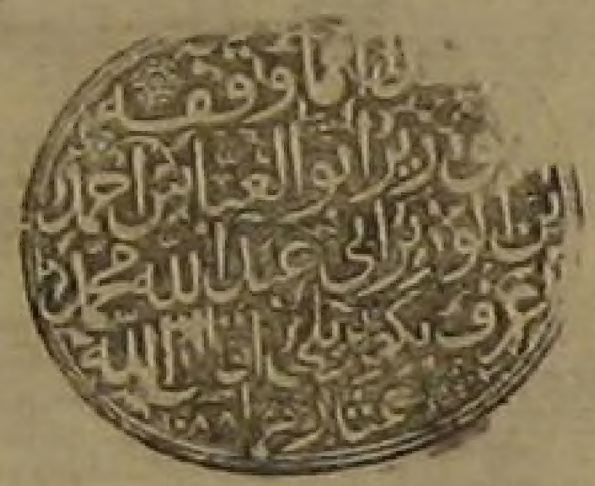 هذا ما وقفه
الوزير ابو العباس احمد
ابن الوزير ابي عبد الله محمد
عرف بكوپريلي اقال الله
عثارهما ١٠٨٨